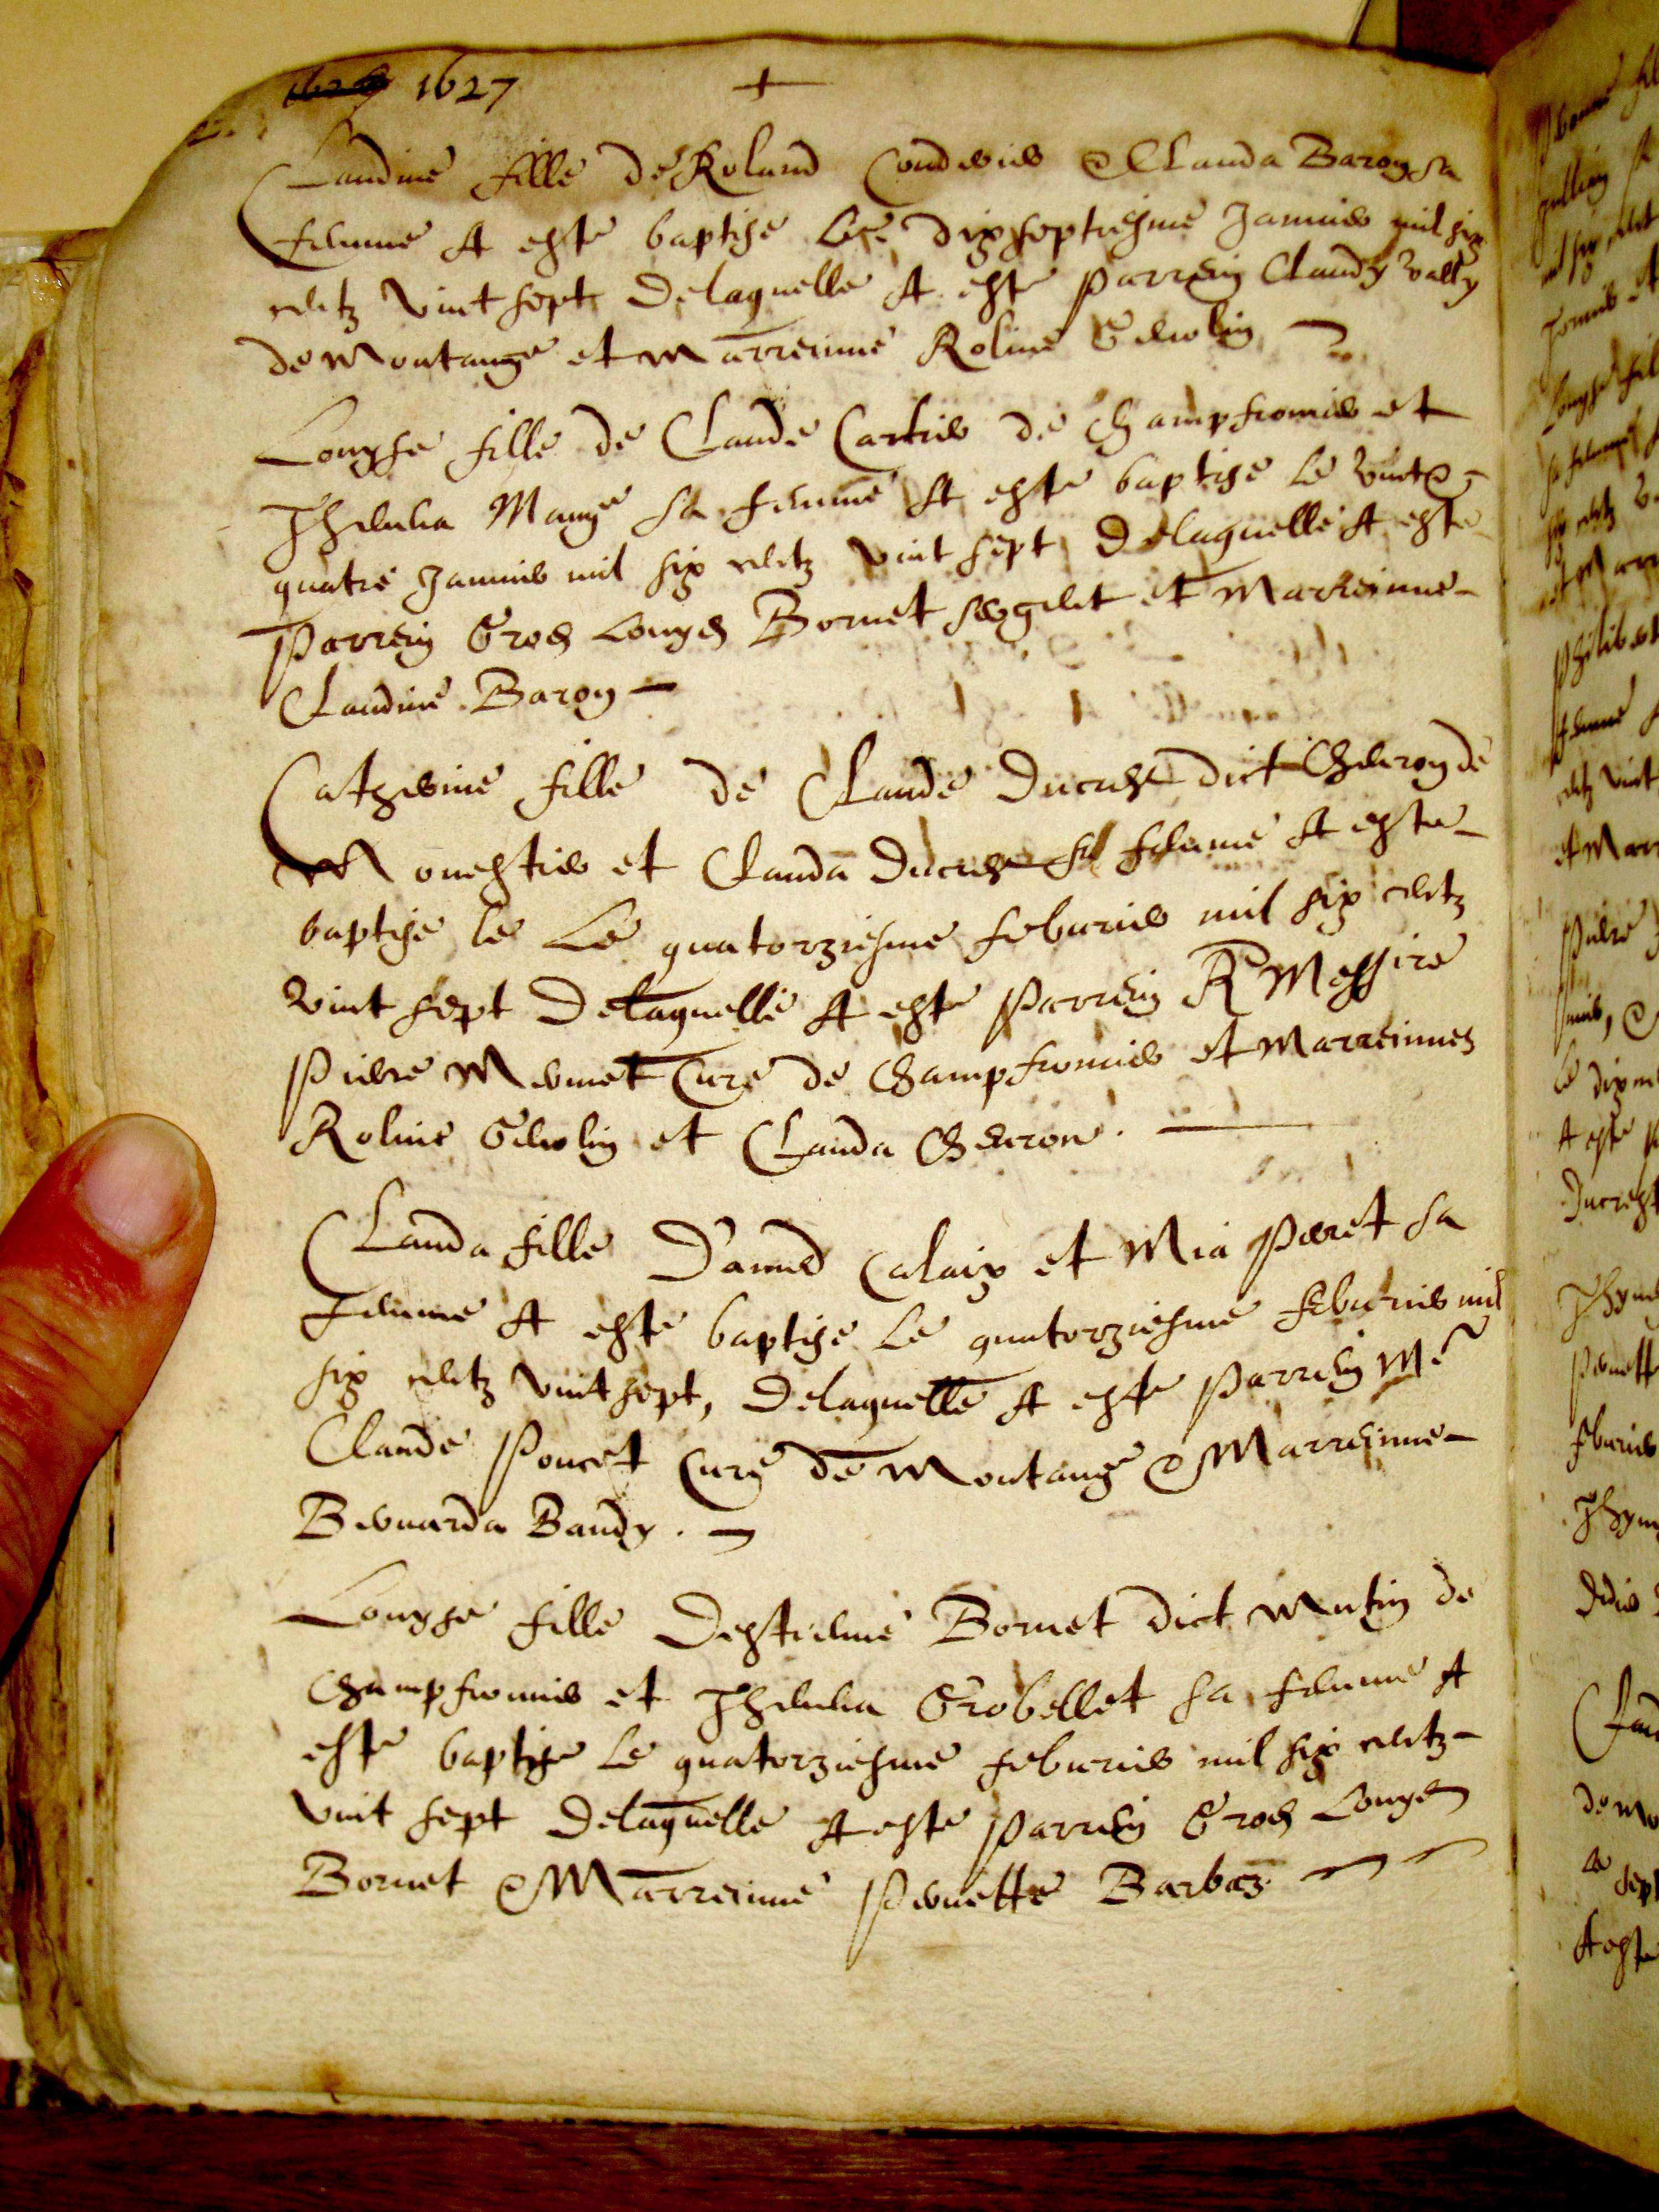 1627 +
Claudine fille de Roland Coudurier & Clauda Baron sa
femme A este baptise le dixseptiesme Januier mil six
centz vint sept Delaquelle A este parrein Claudy
de Montange et Marreinne Roline Genolin
Louyse fille de Claude Cartier de Champfromier et
Theuena Mange sa femme At este baptise le vint &
quatre Januier mil six centz vint sept Delaquelle A este
Parrein Gros Louys Bornet sergent et Marreinne
Claudine Baron
Catherine fille de Claude Ducrest dict Cheuron de
Monestier et Clauda Ducrest sa femme A este
baptise le Le quatorziesme feburier mil six centz
vint sept Delaquelle A este Parrein R Messire
Pierre Mermet Cure de Champfromier et Marreinnes
Roline Genolin et Clauda Cheuron.
Clauda fille D'amed Calaix et Mia Poret sa
femme A este baptise le quatorziesme feburier mil
six centz vint sept, Delaquelle A este Parrein Mre
Claude Poncet Cure de Montange & Marreinne
Bernarda Baudy.
Louyse fille Destienne Bornet dict Mutin de
Champfromier et Theuena Grobellet sa femme A
este baptise le quatorziesme feburier mil six centz
vint sept Delaquelle A este Parrein Gros Louys
Bornet & Marreinne Pernette Barbaz